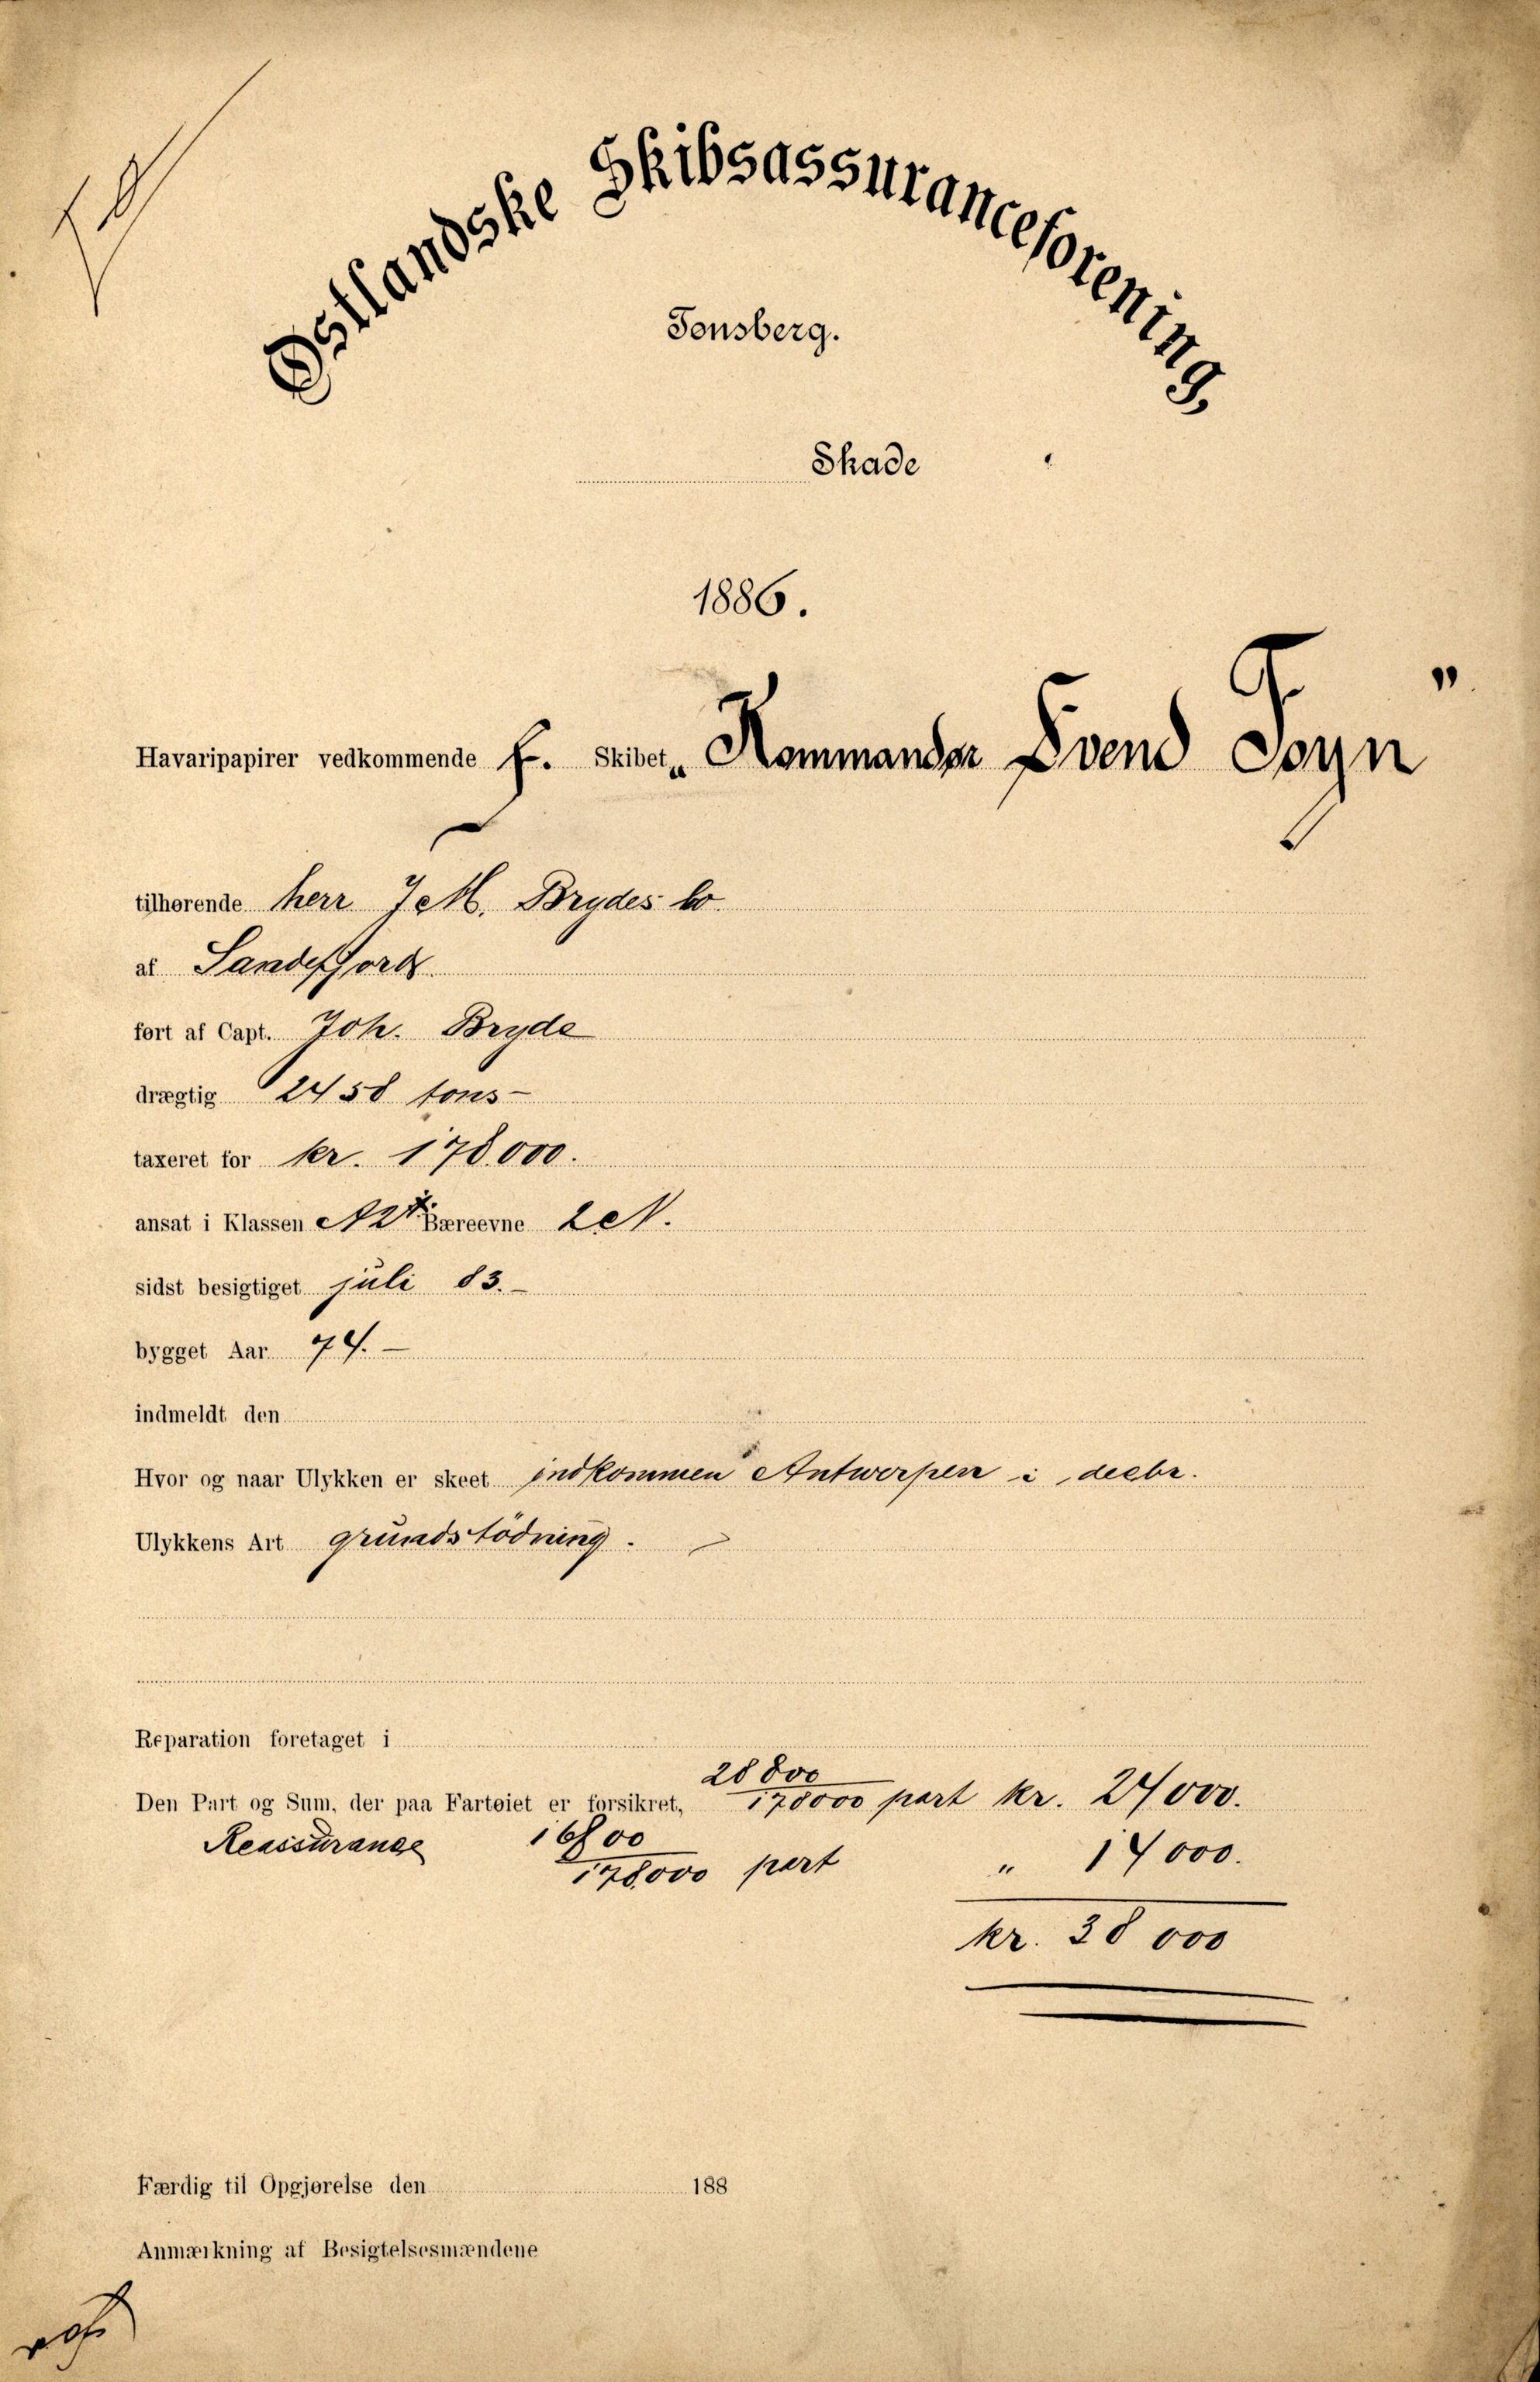 Østlandske Skibsassuranceforening,
Tønsberg.
Skade
1886.
Havaripapirer vedkommende F. Skibet „Kommandør Svend Foyn”
tilhørende herr J M. Brydes bo.
af Sandefjord
ført af Capt. Joh. Bryde
drægtig 2458 tons –
taxeret for kr. 178.000.
ansat i Klassen A2 Bæreevne
sidst besigtiget juli 83. –
bygget Aar 74. –
indmeldt den
Hvor og naar Ulykken er skeet indkommen Antwerpen i decbr.
Ulykkens Art grundstödning.
Reparation foretaget i
28 800
Den Part og Sum, der paa Fartøiet er forsikret, 178000 part kr. 24000.
Reassurance 16800
178.000 part „ 14000.
kr. 38 000
Færdig til Opgjørelse den 188
Anmærkning af Besigtelsesmændene